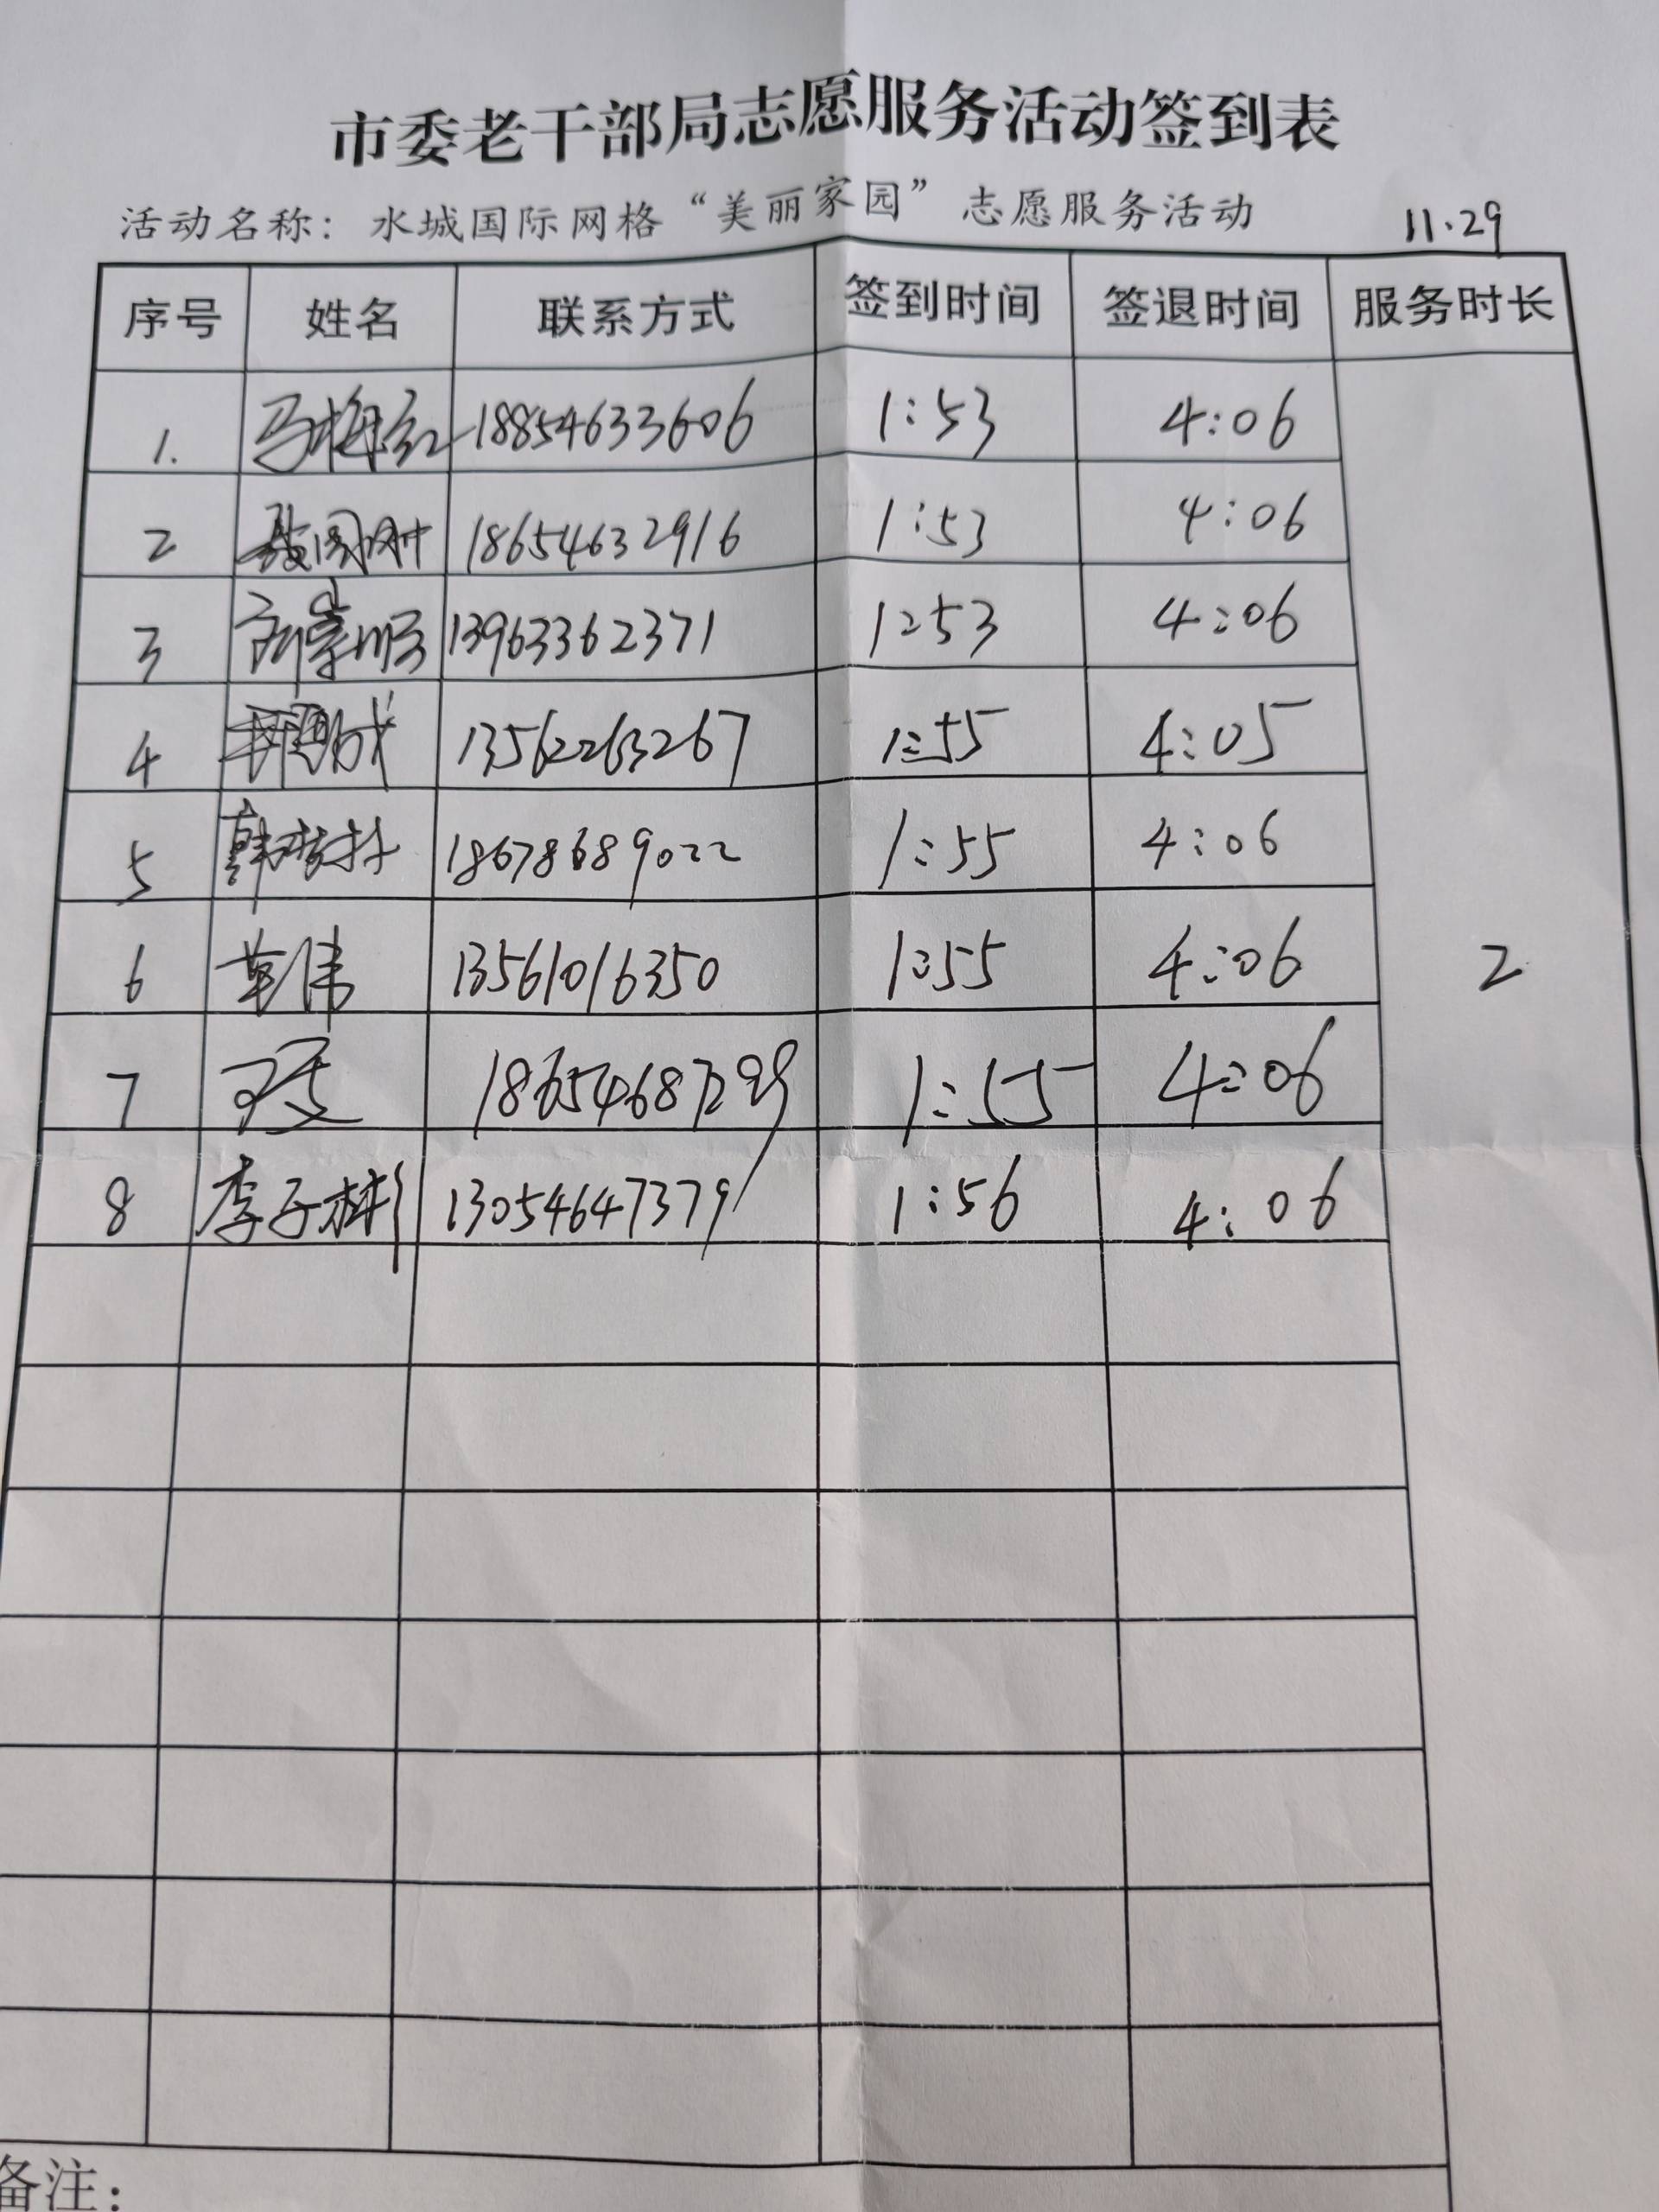 市委老干部局志愿服务活动签到表
活动名称：水城国际网格“美丽家园”志愿服务活动 11.29
序号 姓名 联系方式 签到时间 签退时间 服务时长
1. 马梅红 18854633606 1:53 4:06
2 18654632916 1:53 4:06
3 13963362371 1:53 4:06
4 13562263267 1:55 4:05
5 18678689022 1:55 4:06
6 13561016350 1:55 4:06 2
7 18654687299 1:55 4:06
8 李子彬 13054647379 1:56 4:06
备注：